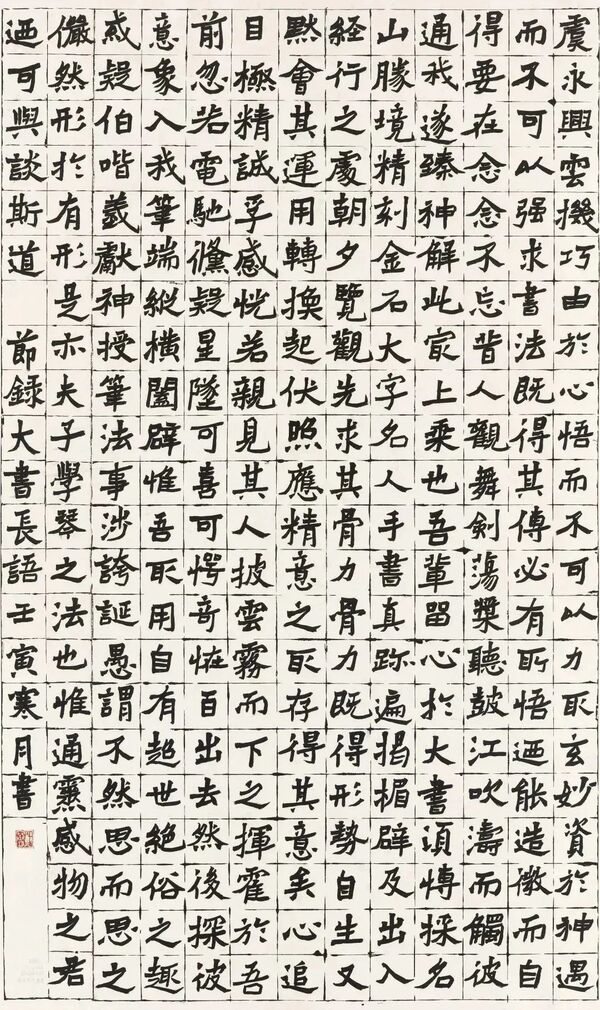 虞永興雲機巧由於心悟而不可以力取玄妙資於神遇
而不可以强求書法既得其傳必有所悟迺能造微而自
得要在念念不忘昔人觀舞剣蕩槳聽鼓江吹濤而觸彼
通我遂臻神解此㝡上乘也吾輩留心於大書須博採名
山勝境精刻金石大字名人手書真跡遍揭楣辟及出入
経行之處朝夕覽觀先求其骨力骨力既得形勢自生又
黙會其運用轉換起伏照應精意之所存得其意矣心追
目極精誠孚感恍若親見其人披雲霧而下之揮霍於吾
前忽若電馳儵疑星墜可喜可愕奇恠百出去然後探彼
意象入我筆端縱橫闔辟惟吾所用自有超世絶俗之趣
或疑伯喈羲獻神授筆法事涉誇誕愚謂不然思而思之
儼然形於有形是亦夫子學琴之法也惟通靈感物之君
迺可與談斯道 節録大書長語壬寅寒月書